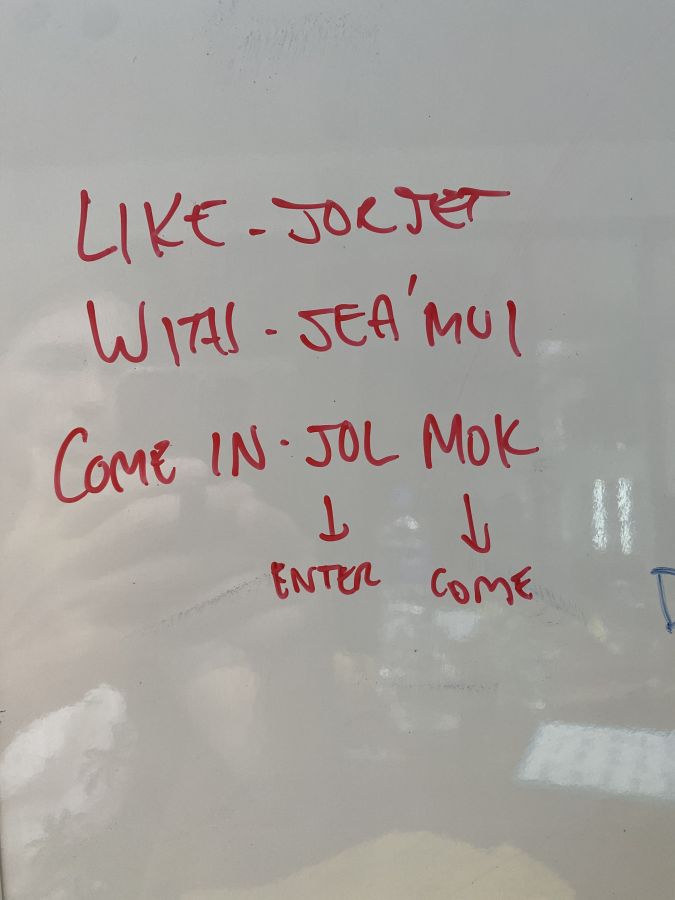 LIKE - JORJET
WITH - JEA'MUI
COME IN - JOL MOK
↓ ↓
ENTER COME